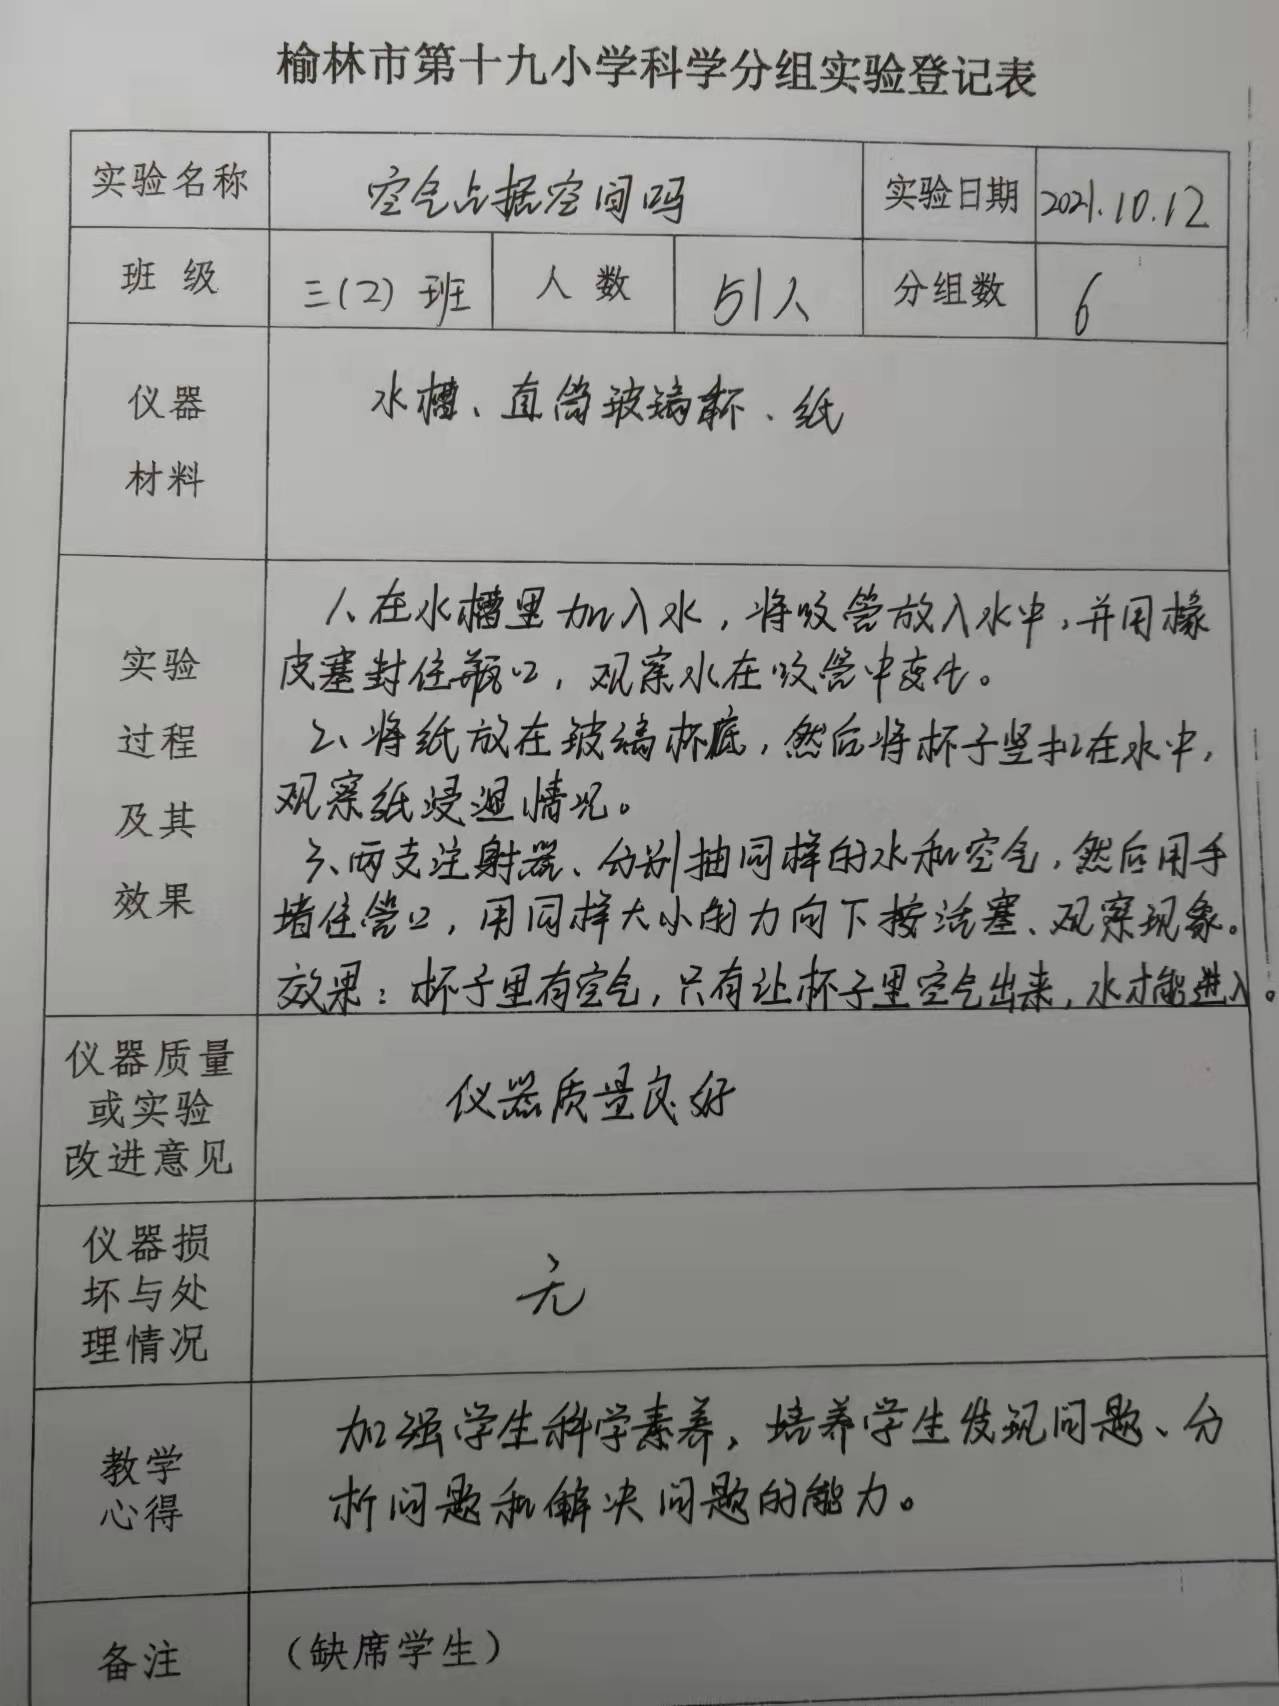 榆林市第十九小学科学分组实验登记表
实验名称 空气占据空间吗 实验日期 2021.10.12
班级 三(2)班 人数 51人 分组数 6
仪器
材料
水槽、直筒玻璃杯、纸
实验
过程
及其
效果
1、在水槽里加入水，将吸管放入水中，并用橡
皮塞封住瓶口，观察水在吸管中变化。
2、将纸放在玻璃杯底，然后将杯子竖扣在水中，
观察纸浸湿情况。
3、两支注射器、分别抽同样的水和空气，然后用手
堵住管口，用同样大小的力向下按活塞、观察现象。
效果：杯子里有空气，只有让杯子里空气出来，水才能进入。
仪器质量
或实验
改进意见
仪器质量良好
仪器损
坏与处
理情况
无
教学
心得
加强学生科学素养，培养学生发现问题、分
析问题和解决问题的能力。
备注 （缺席学生）